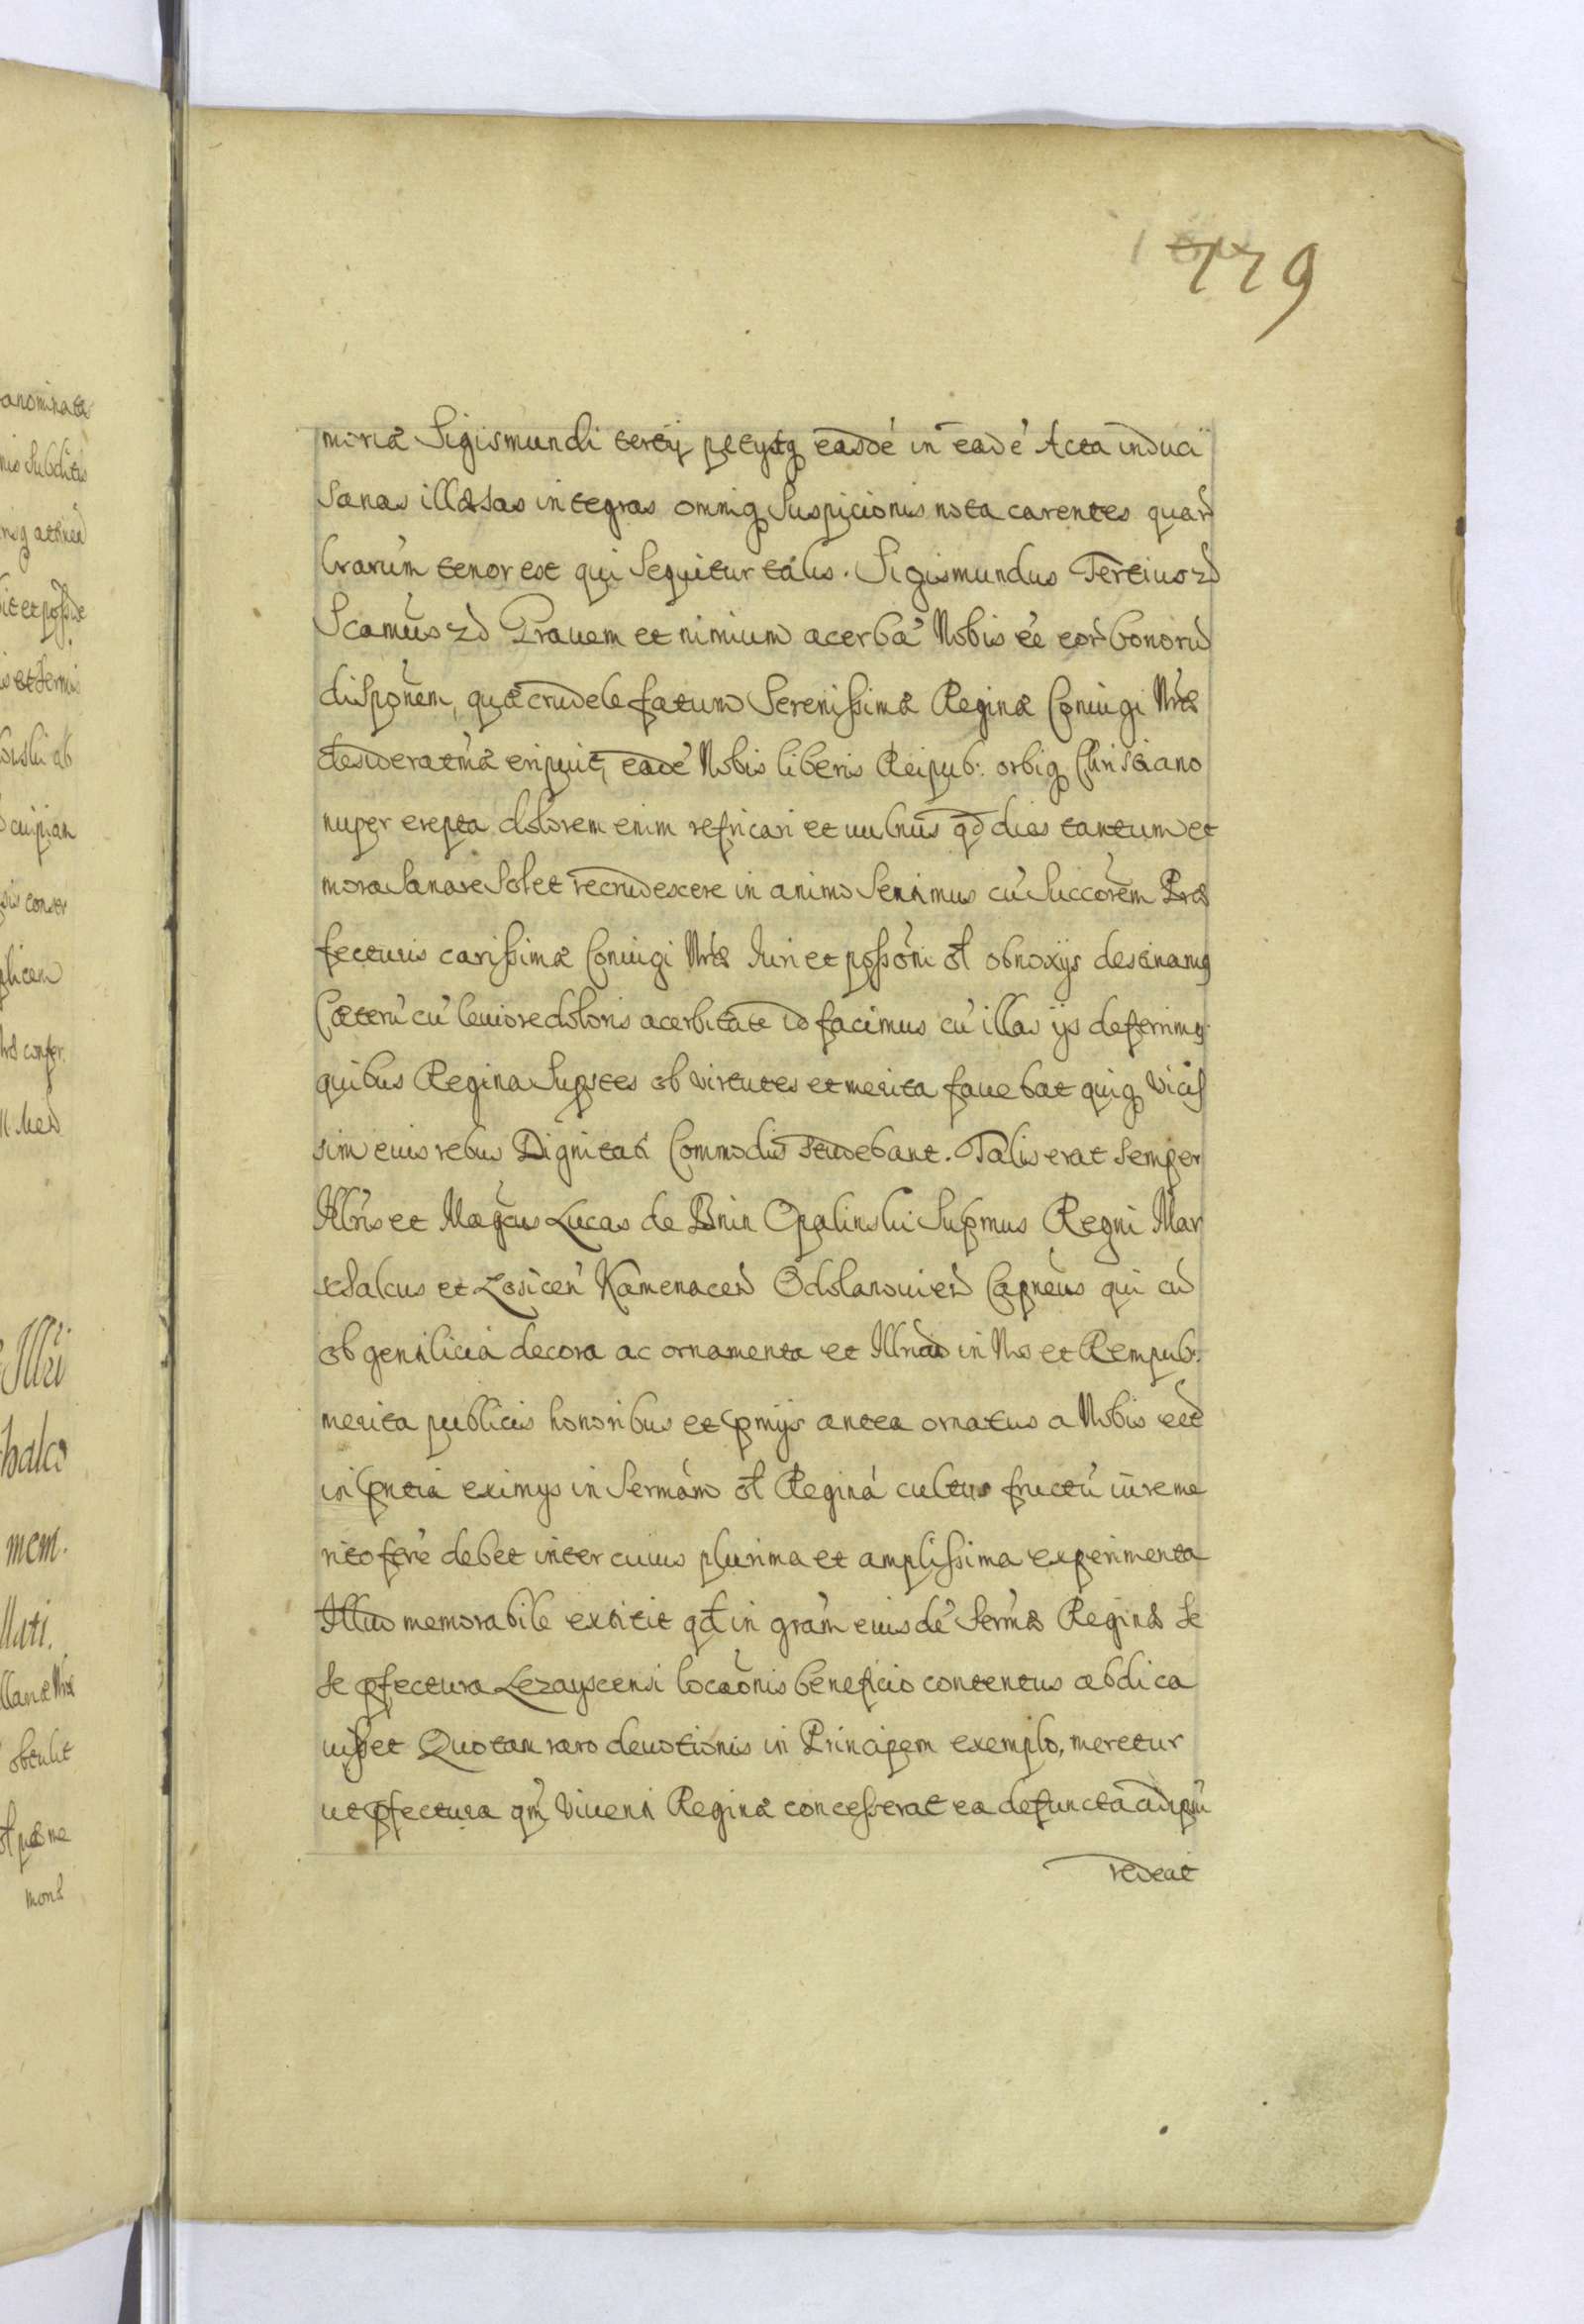 179
moriæ Sigismundi tertij petijtq easdé in eadé Acta induci
sanas illæsas integras omniq suspicionis nota carentes quar
lrarum tenor est qui sequitur talis. Sigismundus Tertius
Scamus Grauem et nimium acerbá Nobis eé eor bonoru
disponem, quæ crudele fatum Serenissimæ Reginæ Coniugi Nræ
desideratmæ eripuit, eadé Nobis liberis Reipub: orbiq Christiano
nuper erepta dolorem enim refricari et uulnus qd dies tantum et
mora sanare solet recrudescere in animo sentimus cú succorem Præ
fecturis carissimæ Coniugi Nræ Iuri et possoni ol obnoxijs destinamq
Cæterú cú leuiore doloris acerbitate id facimus cú illas ijs deferrimq
quibus Regina supstes ob virtutes et merita fauebat quiq vicis
sim eius rebus Dignitati Commodis studebant. Talis erat semper
Illris et Magcus Lucas de Bnin Opalinski Supmus Regni Mar
schalcus et Losicen Kamenacen Odolanouien Capneus qui cu
ob gentilicia decora ac ornamenta et Illria in Nos et Rempub:
merita publicis honoribus et pmijs antea ornatus a Nobis eet
in pntia eximijs in Sermam ol Reginá cultus fructú iure me
rito ferre debet inter cuius plurima et amplissima experimenta
Illud memorabile extitit qd in gram eiusdé Sermæ Reginæ se
se pfectura Lezayscensi locaonis beneficio contentus abdica
uisset Quo tam raro deuotionis in Principem exemplo, meretur
ut pfectura qm Viuenti Reginæ concesserat ea defuncta ad ipsu
redeat